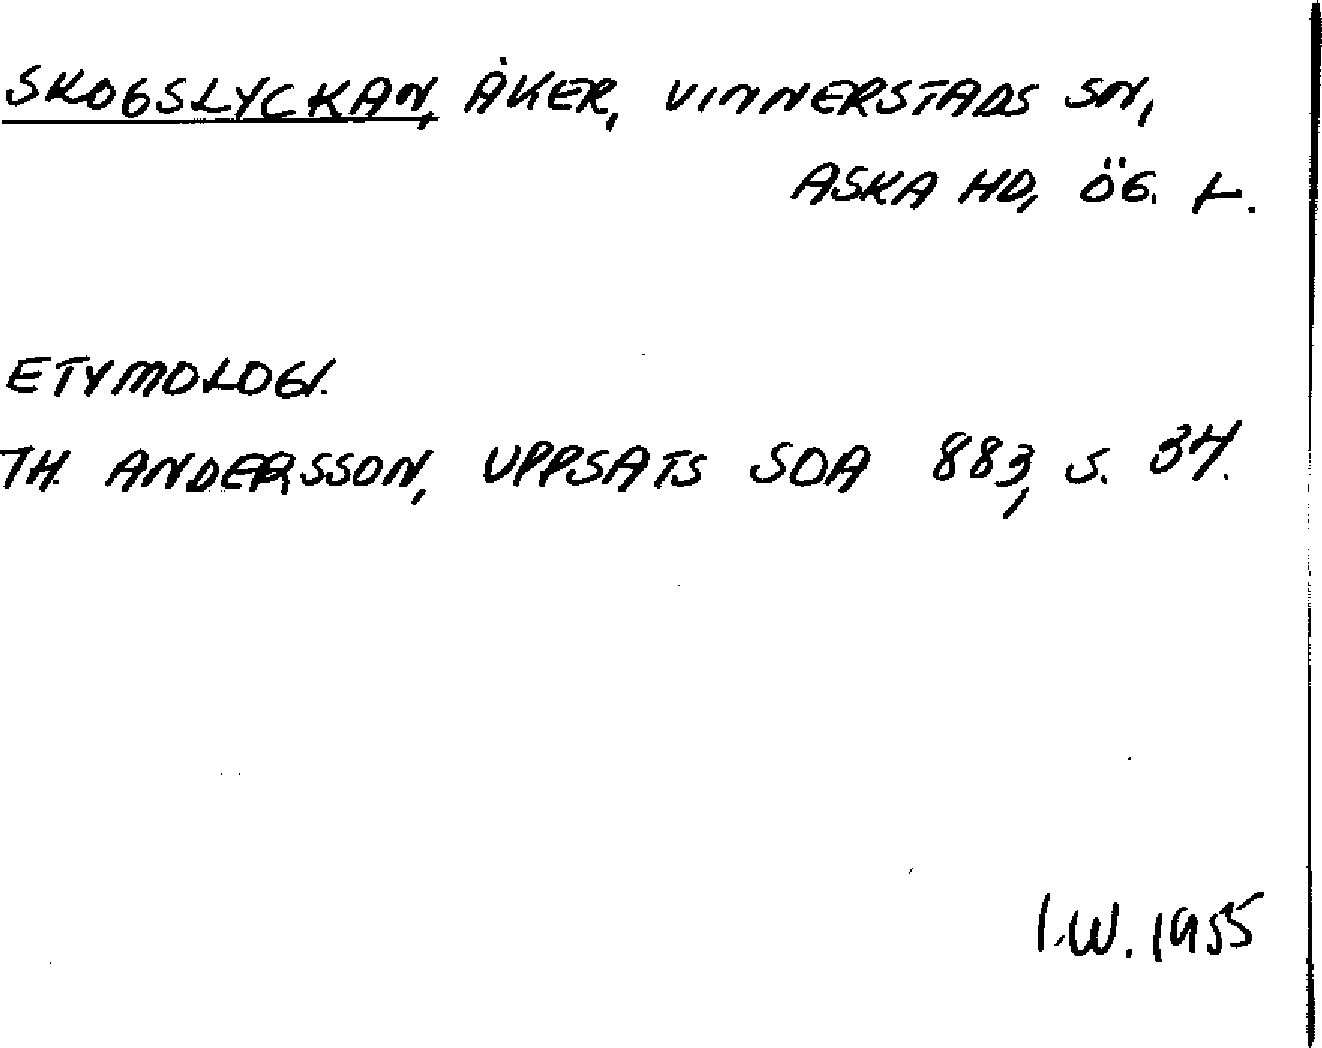 SKOGSLYCKAN, ÅKER, VINNERSTADS SN,
ASKA HD, ÖG. L.
ETYMOLOGI.
TH. ANDERSSON, UPPSATS SOA 883, S. 34.
I.W. 1955